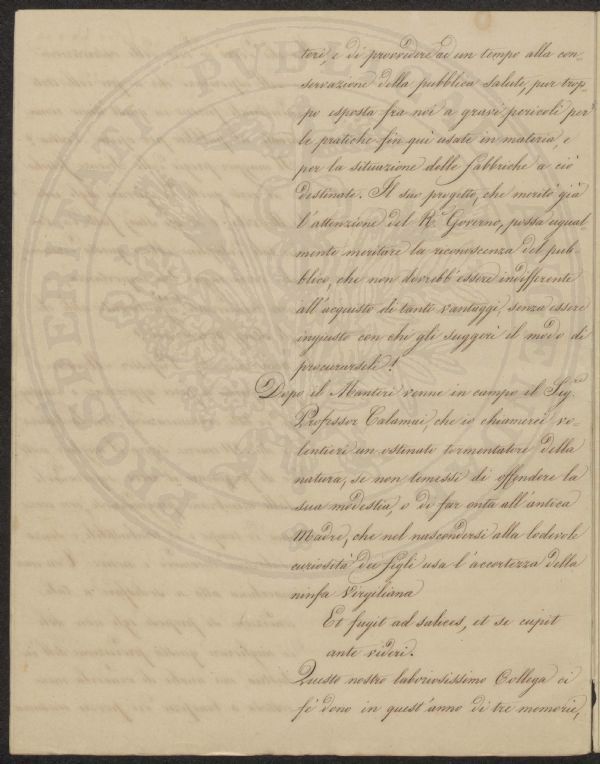 tori, e di provvedere ad un tempo alla con-
servazione della pubblica salute, pur trop-
po esposta fra noi a gravi pericoli per
le pratiche fin quì usate in materia, e
per la situazione delle fabbriche a ciò
destinate. Il suo progetto, che meritò già
l'attenzione del R. Governo, possa egual-
mente meritare la riconoscenza del pub-
blico, che non dovrebb'essere indifferente
all'acquisto di tanti vantaggi, senza essere
ingiusto con chi gli suggerì il modo di
procurarseli!
Dopo il Manteri venne in campo il Sig.
Professor Calamai, che io chiamerei vo-
lentieri un ostinato tormentatore della
natura, se non temessi di offendere la
sua modestia, o di far onta all'antica
Madre, che nel nascondersi alla lodevole
curiosità dei figli usa l'accortezza della
ninfa Virgiliana
Et fugit ad salices, et se cupit
ante videri.
Questo nostro laboriosissimo Collega ci
fè dono in quest'anno di tre memorie,
PROSPERITATI PUBLICAE